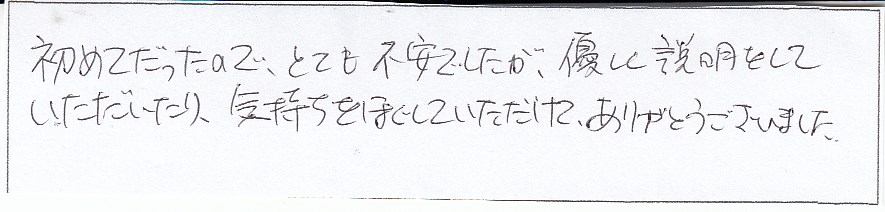 初めてだったので、とても不安でしたが、優しく説明をして
いただいたり、気持ちをほぐしていただけて、ありがとうございました